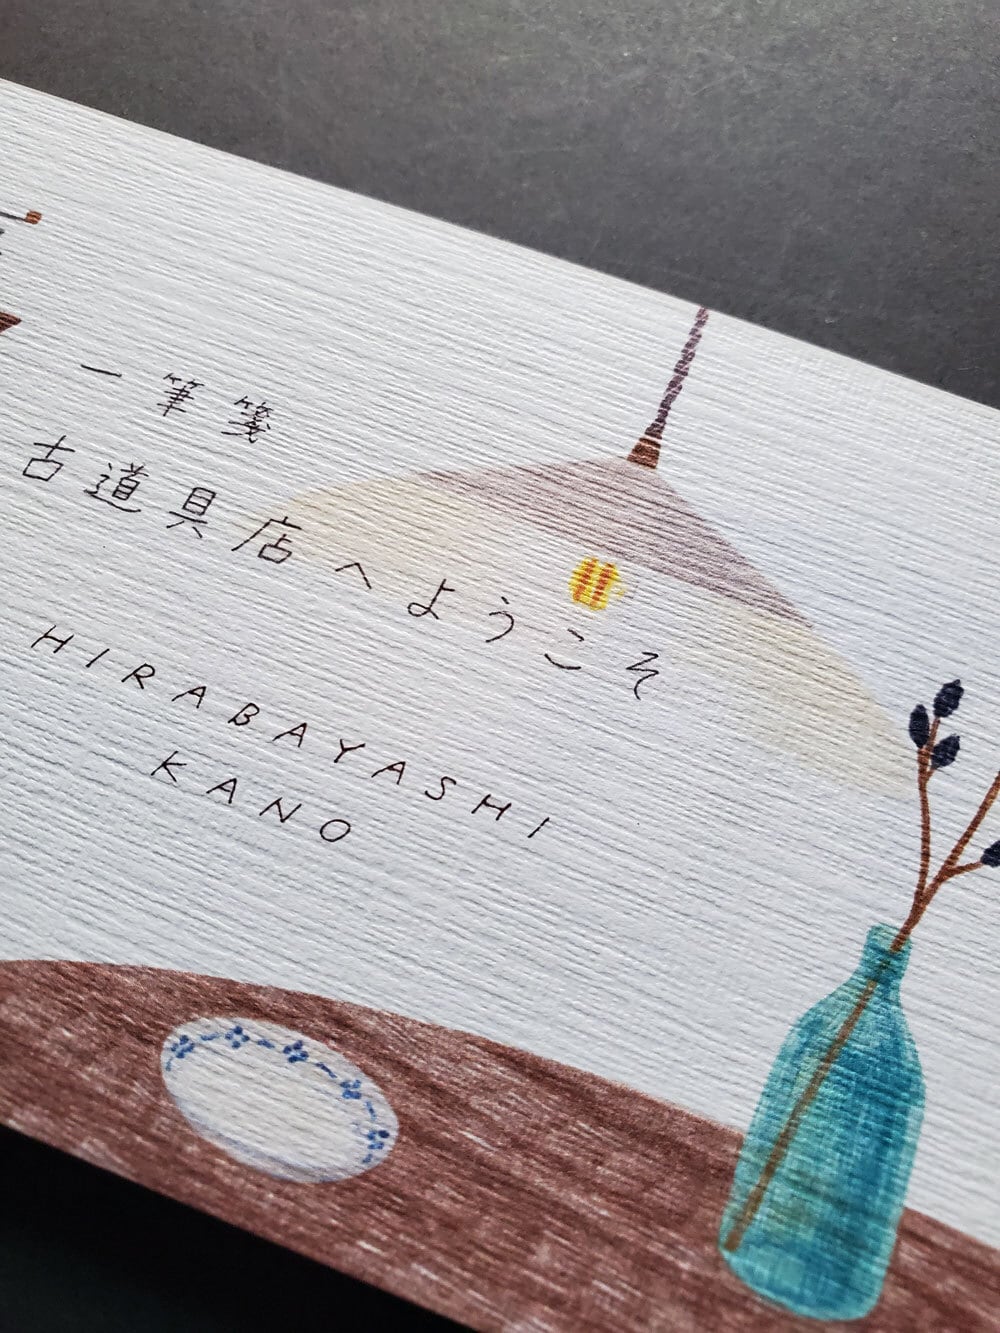 一筆箋
古道具店へようこそ
HIRABAYASHI
KANO